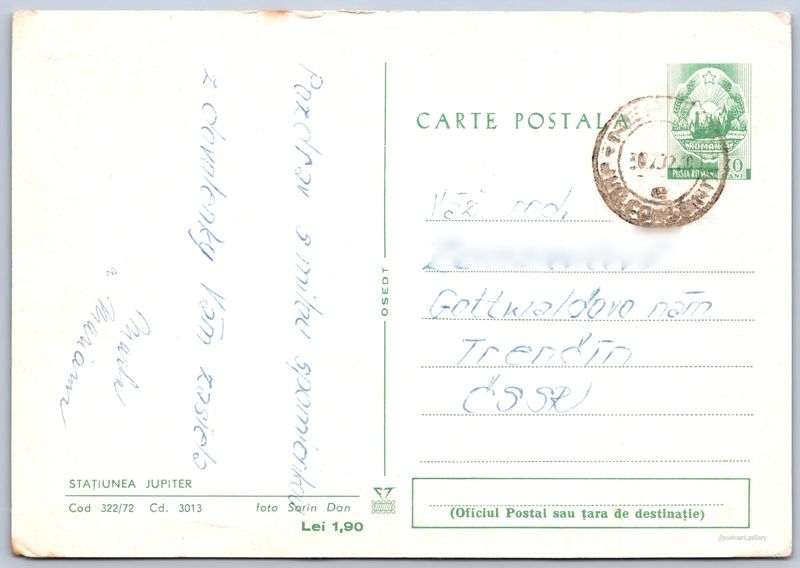 Pozdrav s milou spomienkou
z dovolenky Vám zasiela
a Mariana
STAȚIUNEA JUPITER
Cod 322/72 Cd. 3013 foto Sorin Dan
Lei 1,90
OSEDT
CARTE POSTALA
ROMANIA
POSTA ROMANA
40
BANI
Váž rod.
Gottwaldovo nám
Trenčín
ČSSR
(Oficiul Postal sau țara de destinație)
postcard.gallery